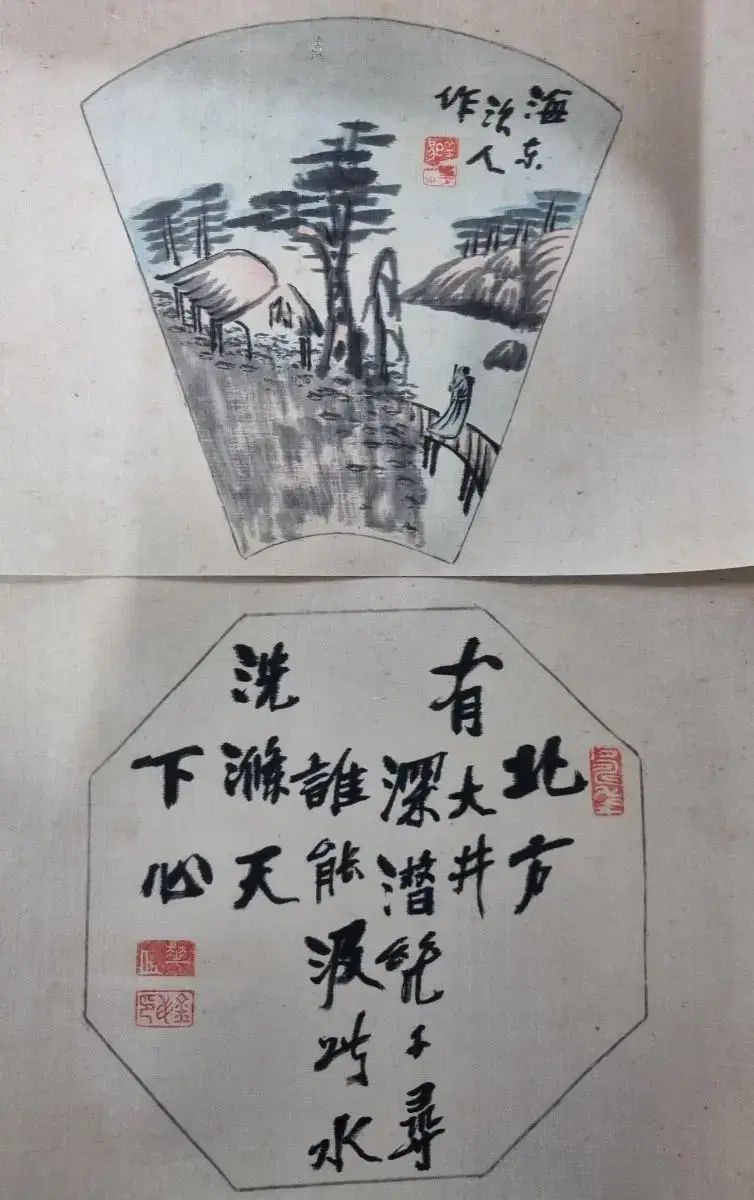 海东
人
作
北方
有大井
深潜幾千尋
誰能汲此水
洗滌天
下心